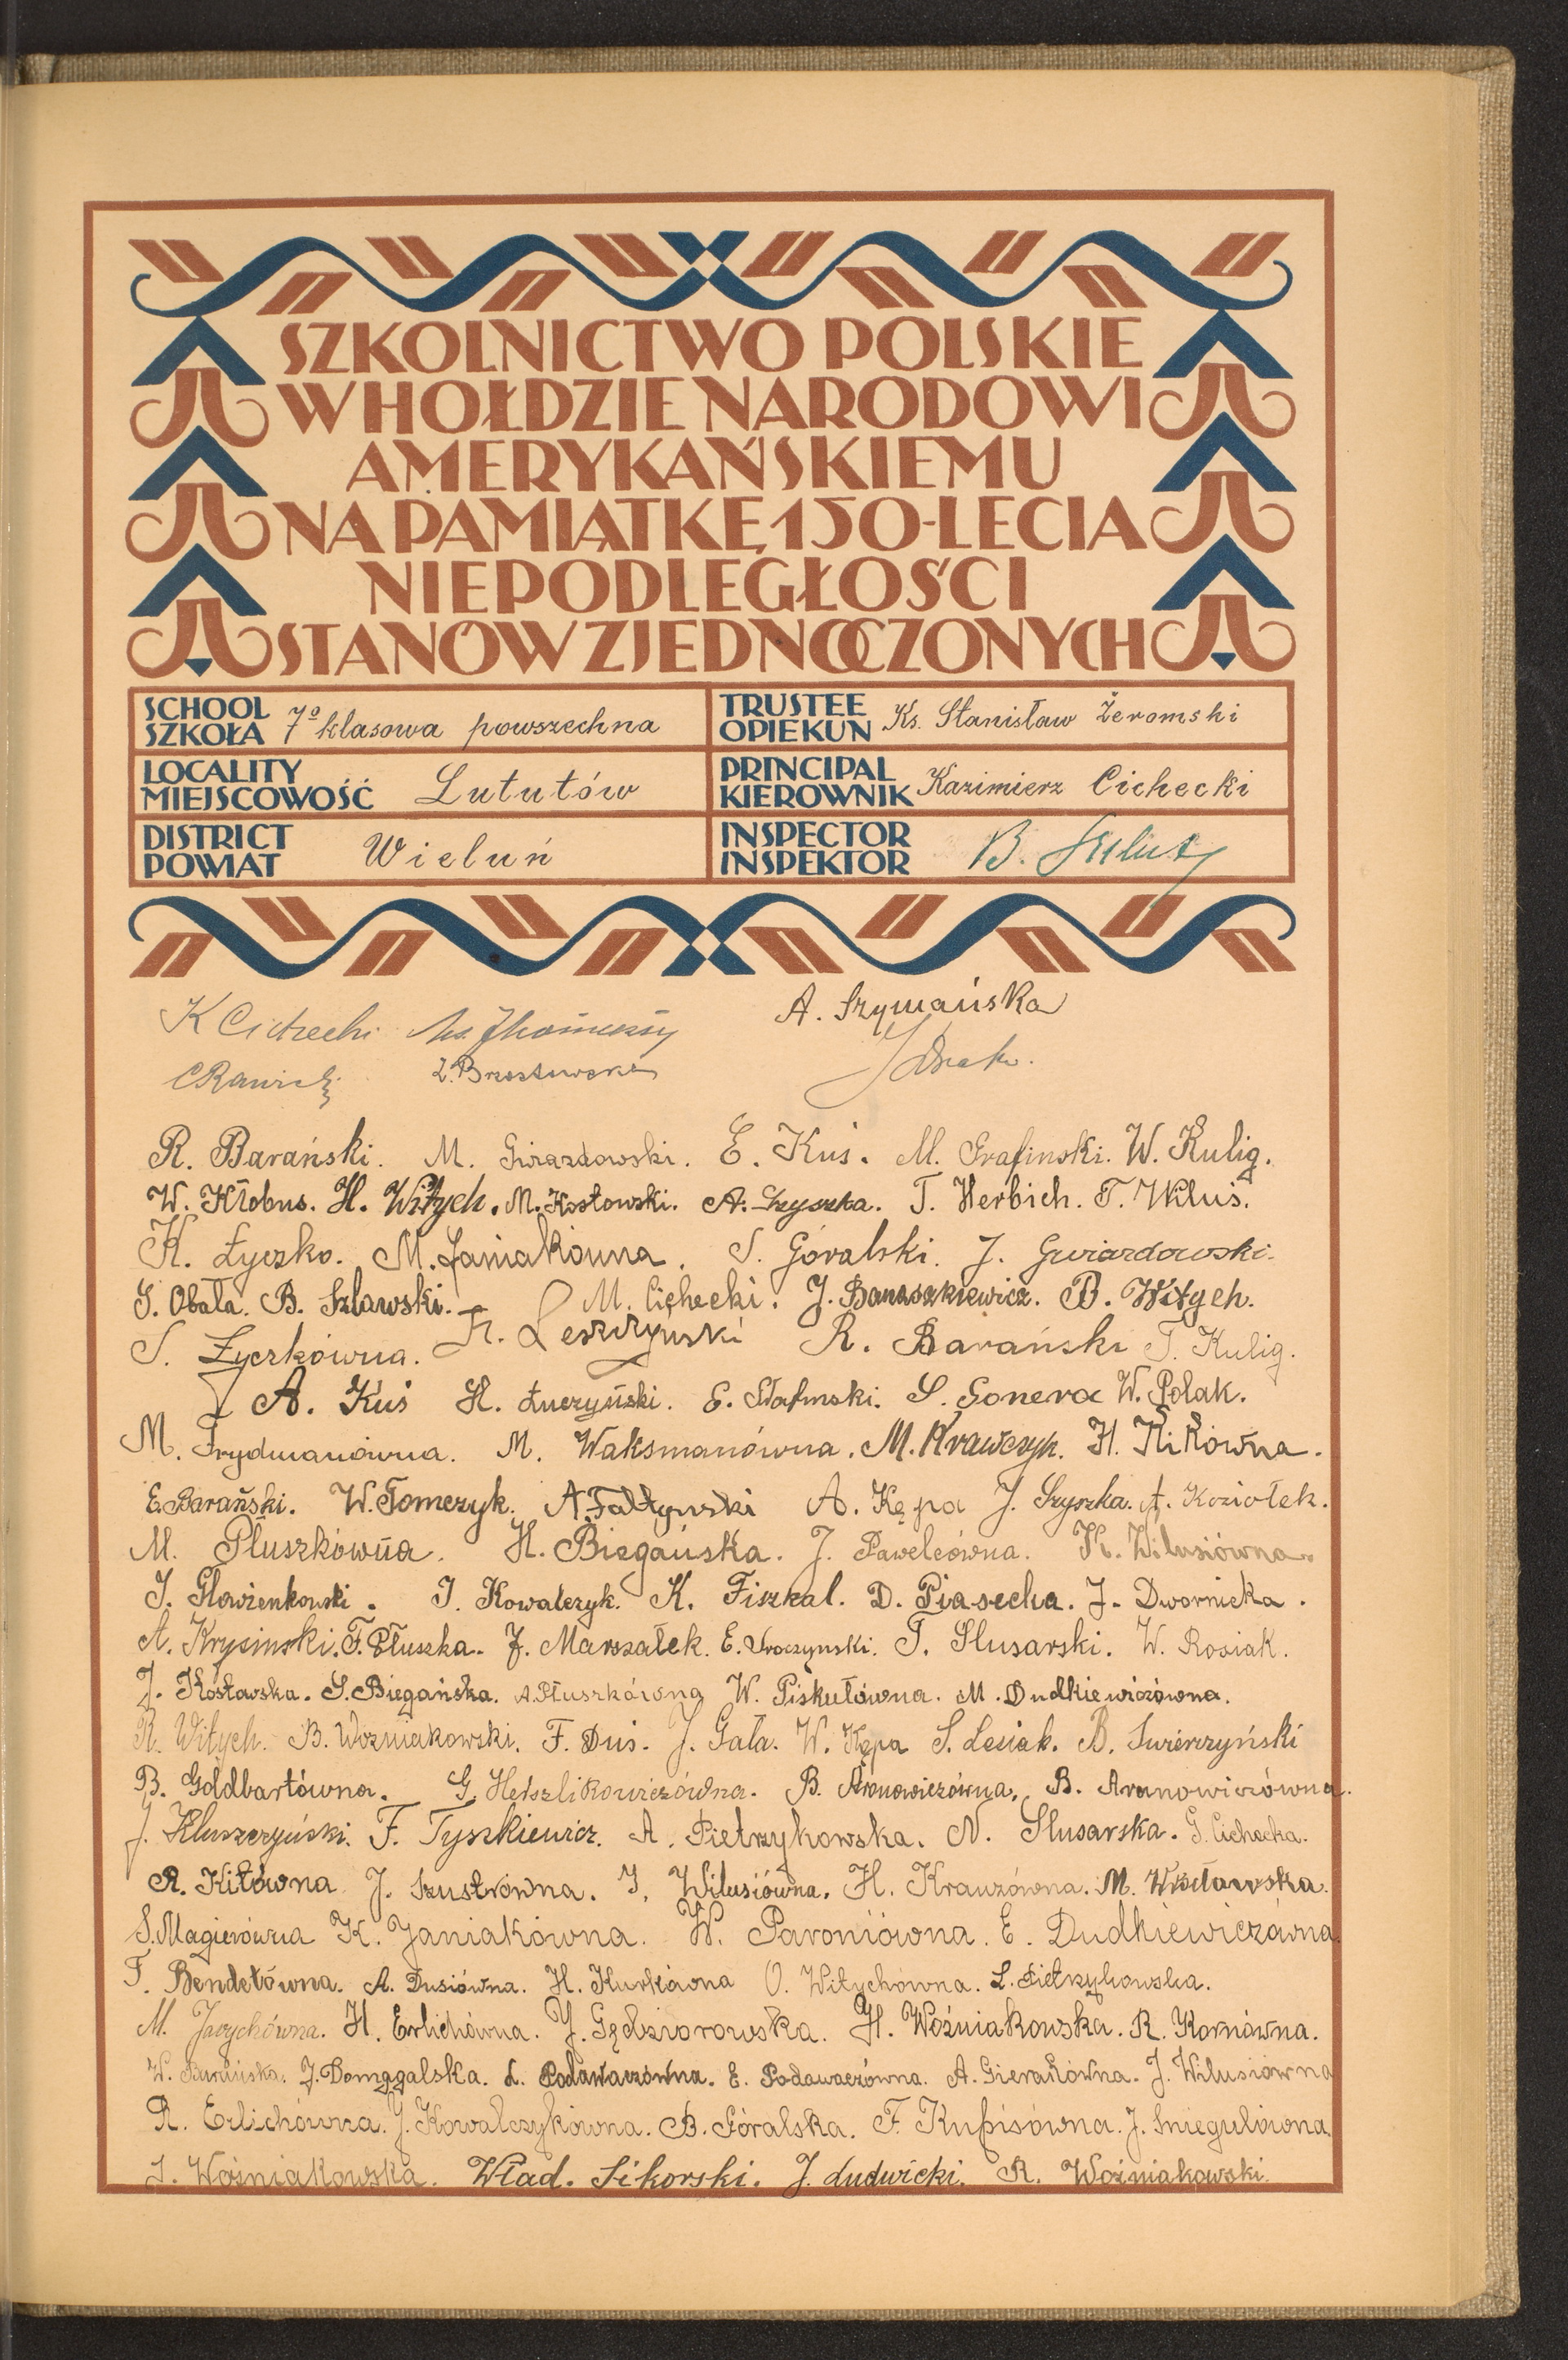 SZKOLNICTWO POLSKIE
W HOŁDZIE NARODOWI
AMERYKAŃSKIEMU
NA PAMIĄTKĘ 150-LECIA
NIEPODLEGŁOŚCI
STANÓW ZJEDNOCZONYCH
SCHOOL
SZKOŁA 7º klasowa powszechna
TRUSTEE
OPIEKUN Ks. Stanisław Żeromski
LOCALITY
MIEJSCOWOŚĆ Lututów
PRINCIPAL
KIEROWNIK Kazimierz Cichecki
DISTRICT
POWIAT Wieluń
INSPECTOR
INSPEKTOR B.
K Cichecki A. Szymańska
R. Barański. M. Gwiazdowski. E. Kuś. M. Grafinski. W. Kulig.
W. Kłobus. H. Witych. M. Kosłowski. A. Szyszka. T. Herbich. T. Wkluś.
K. Łyczko. M. Janiakówna. S. Góralski. J. Gwiazdowski.
S. Obała. B. Szlawski. M. Cichecki. J. Banaszkiewicz. B. Witych.
S. Łyczkówna. Fr. Leszczyński R. Barański T. Kulig.
A. Kuś H. Łuczyński. E. S. Gonera W. Polak.
M. Frydmanówna. M. Waksmanówna. M. Krawczyk. H. Kikówna.
E. Barański. W. Tomczyk. A. Fałtyński A. Kępa J. Szyszka. A. Koziołek.
M. Płuszkówna. H. Biegańska. J. Pawelcówna. K. Wilusiówna.
J. Głowienkowski. J. Kowalczyk. K. Fiszkal. D. Piasecka. J. Dwornicka.
A. Krysinski. F. Płuszka. J. Marszałek. E. Uroczynski. T. Slusarski. W. Rosiak.
J. Kosławska. S. Biegańska. A. Płuszkówna W. Piskułówna. M. Dudkiewiczówna.
R. Witych. B. Woźniakowski. F. Duś. J. Gała. W. Kępa S. Lesiak. B. Swierczyński
B. Goldbartówna. G. Herszlikowiczówna. B. Aronowiczówna. B. Aronowiczówna.
J. Kluszczyński. F. Tyszkiewicz. A. Pietrzykowska. N. Slusarska. G. Cichecka.
R. Kitówna J. Szustrówna. J. Wilusiówna. H. Krauzówna. M.
S. Magierówna K. Janiakówna. W. Paroniówna. E. Dudkiewiczówna
T. Bendetówna. A. Dusiówna. H. Kurkówna O. Witychówna. L. Pietrzykowska.
M. Jarychówna. H. Erlichówna. J. Gędziorowska. H. Woźniakowska. R. Kornówna.
W. Barańska. J. Domagalska. L. Podawaczówna. E. Podawaczówna. A. Gierakówna. J. Wilusiówna
R. Erlichówna. J. Kowalczykówna. B. Góralska. F. Kupisówna. J. Sniegulówna.
J. Woźniakowska. Wład. Sikorski. J. Ludwicki. R. Woźniakowski.